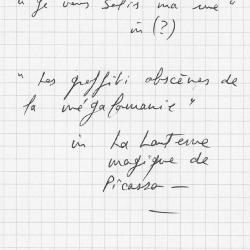 " Je vous salis ma rue "
in (?)
" Les graffiti obscènes de
la mégalomanie "
in La Lanterne
magique de
Picasso —